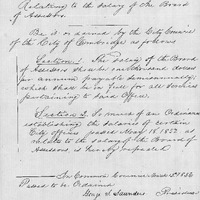 Relating to the salary of the Board
of Assessors.
Be it ordained by the City Council
of the City of Cambridge as follows
Section 1. The salary of the Board
of Assessors shall be one thousand dollars
per annum payable semiannually
which shall be in full for all services
pertaining to said office.
Section 2. So much of an Ordinance
establishing the salaries of certain
City officers passed May 18, 1852 as
relates to the salary of the Board of
Assessors is hereby repealed
In Common Council
Passed to be Ordained
Geo. S. Saunders President